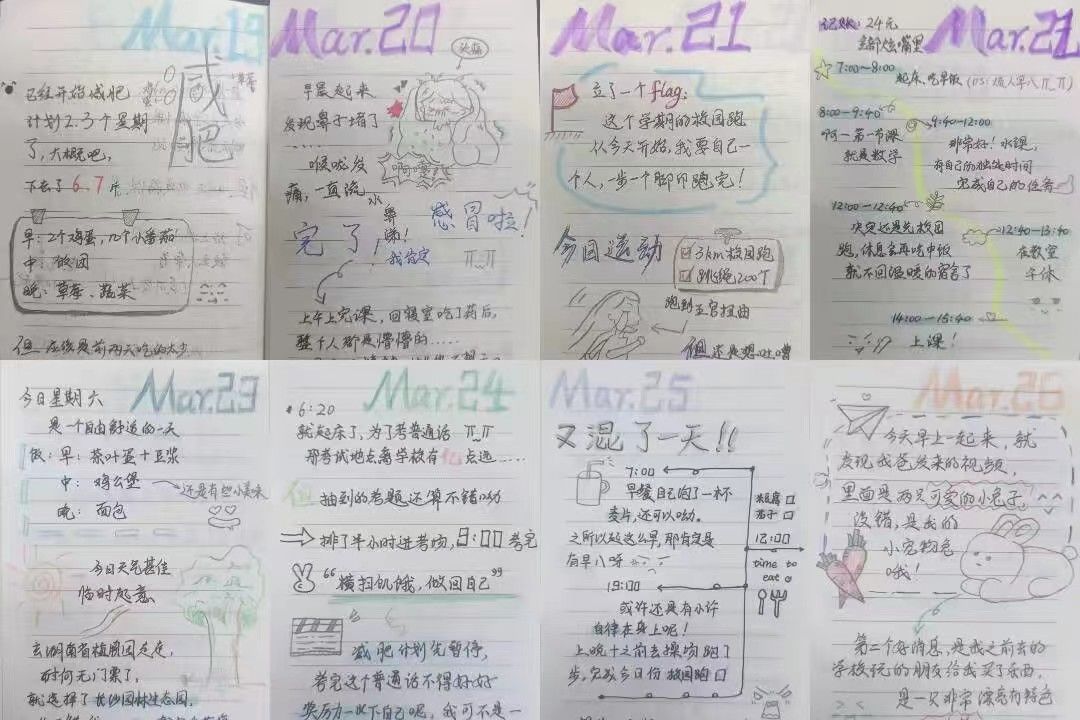 Mar.19
减肥
已经开始减肥
计划2.3个星期
了，大概吧，
下去了6.7斤
早：2个鸡蛋，几个小番茄！
中：饭团
晚：草莓、蔬菜
但
Mar.20
头痛
早晨起来
发现鼻子堵了
……
喉咙发
痛，一直流
鼻
涕！
感冒啦！
完了！
我肯定
上午上完课，回寝室吃了药后，
整个人都是懵懵的……
Mar.21
立了一个flag：
这个学期的校园跑
从今天开始，我要自己一
个人，一步一个脚印跑完！
今日运动
3km校园跑
跳绳200个
跑到五官扭曲
但还是想吐槽
24元
全部炫嘴里
Mar.22
7:00—8:00
起床、吃早饭
8:00—9:40
啊—第一节课
就是数学
9:40—12:00
非常好！水课，
有自己的独处时间
完成自己的任务
12:00—12:40
决定还是先校园
跑，休息会再吃中饭
就不回温暖的宿舍了
12:40—13:40
在教室
午休
14:00—15:40
上课！
Mar.23
今日星期六
是一个自由舒适的一天
饭：早：茶叶蛋＋豆浆
中：鸡公堡
还是有些小美味
晚：面包
今日天气甚佳
临时起意、
去湖南省植物园走走，
奈何无门票了，
就选择了长沙园林生态园，
Mar.24
6:20
就起床了，为了考普通话 π_π
那考试地点离学校有亿点远……
但 抽到的考题还算不错呦
排了半小时进考场，9:00考完
“横扫饥饿，做回自己”
减肥计划先暂停，
考完这个普通话不得好好
奖励一下自己呢，我可不是一
Mar.25
又混了一天!!
7:00
早餐自己泡了一杯
麦片，还可以呦。
之所以起这么早，那肯定是
有早八呀
12:00
time to
eat
19:00
或许还是有小许
自律在身上呢！
上晚十之前去操场跑了
步，完成今日份校园跑
Mar.26
今天早上一起来，就
发现我爸发来的视频，
里面是两只可爱的小兔子，
没错，是我的
小宠物兔
哦！
第二个好消息，是我之前去的
学校玩的朋友给我买了东西，
是一只非常漂亮有特色